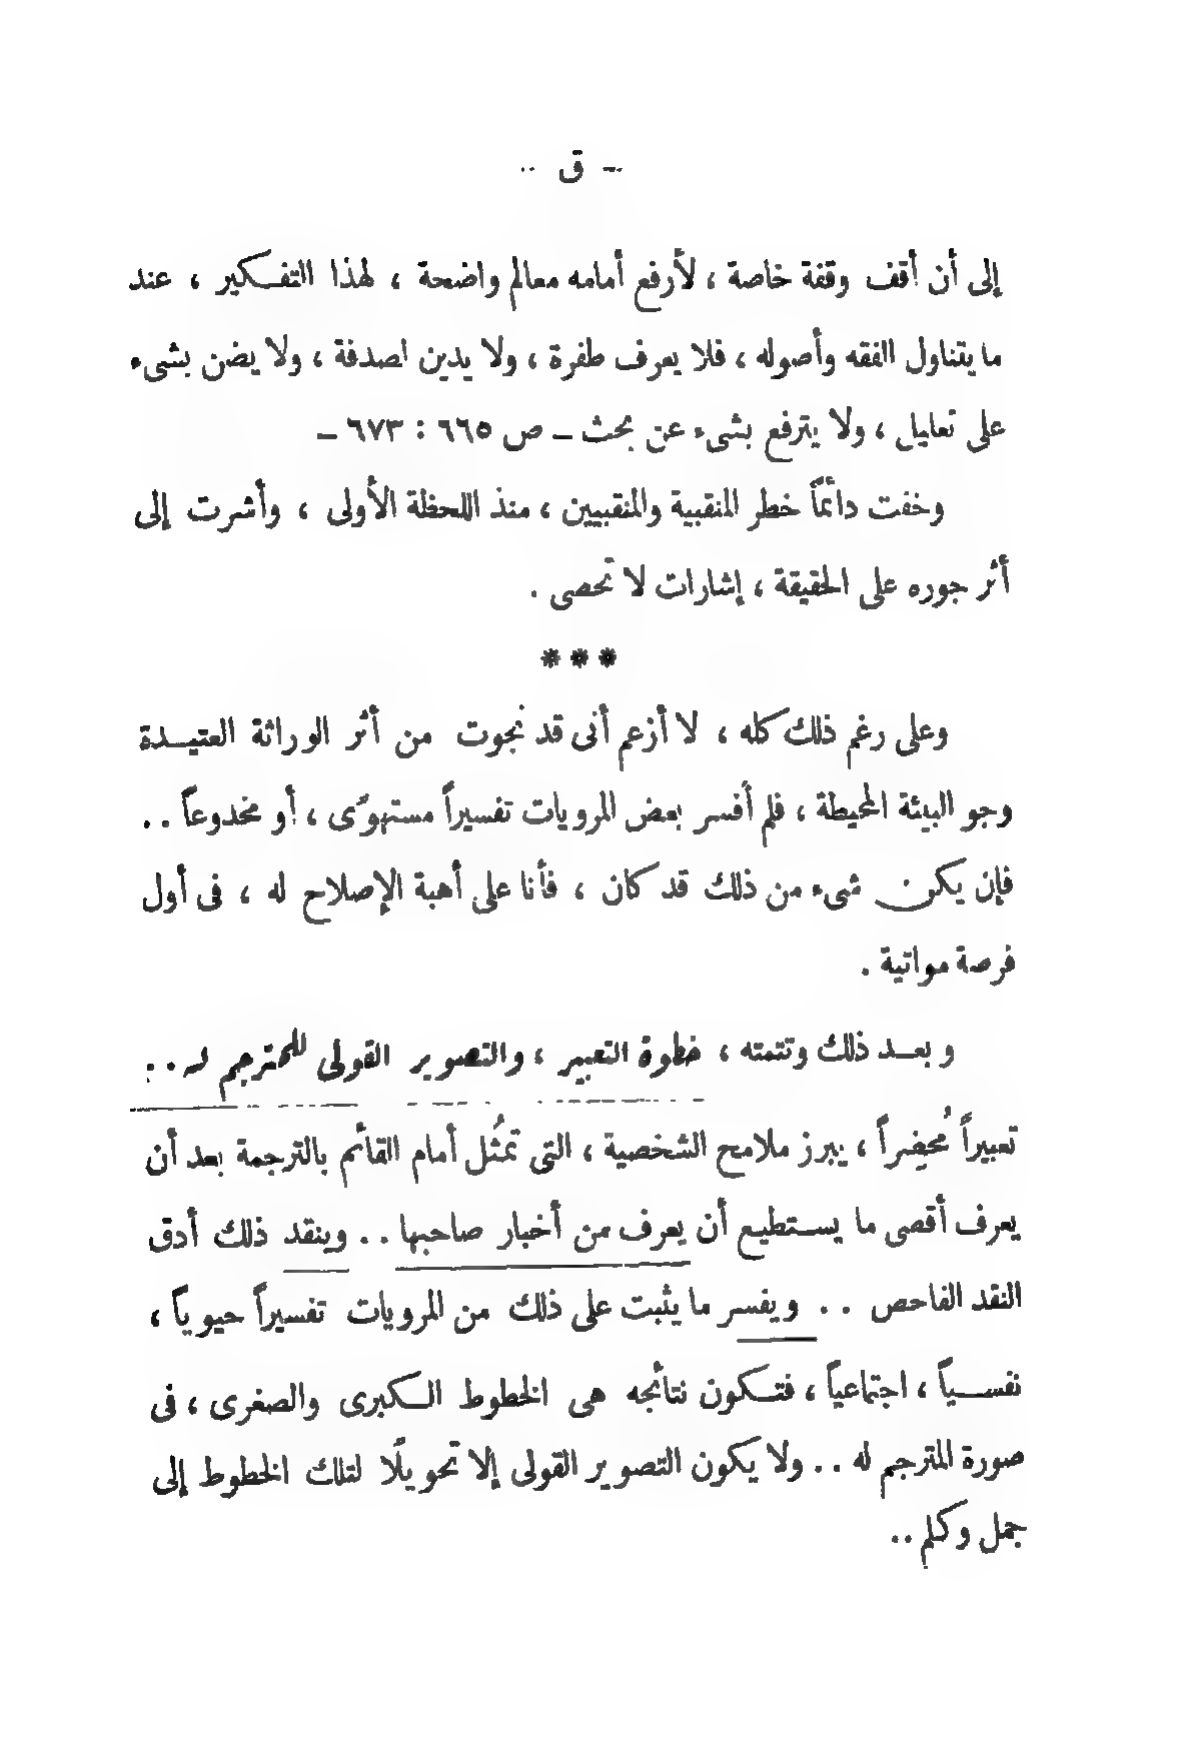 - ق ..
إلى أن أقف وقفة خاصة ، لأرفع أمامه معالم واضحة ، لهذا التفكير ، عند
ما يتناول الفقه وأصوله ، فلا يعرف طفرة ، ولا يدين لصدفة ، ولا يضن بشىء
على تعليل ، ولا يترفع بشىء عن بحث – ص ٦٦٥ : ٦٧٣ –
وخفت دائماً خطر المنقبية والمنقبيين ، منذ اللحظة الأولى ، وأشرت إلى
أثر جوره على الحقيقة ، إشارات لا تحصى .
***
وعلى رغم ذلك كله ، لا أزعم أنى قد نجوت من أثر الوراثة العتيدة
وجو البيئة المحيطة ، فلم أفسر بعض المرويات تفسيراً مستهوًى ، أو مخدوعاً ..
فإن يكن شىء من ذلك قد كان ، فأنا على أهبة الإصلاح له ، فى أول
فرصة مواتية .
وبعد ذلك وتتمته ، خطوة التعبير ، والتصوير القولى للمترجم له ..
تعبيراً مُحضِراً ، يبرز ملامح الشخصية ، التى تمثُل أمام القائم بالترجمة بعد أن
يعرف أقصى ما يستطيع أن يعرف من أخبار صاحبها .. وينقد ذلك أدق
النقد الفاحص .. ويفسر ما يثبت على ذلك من المرويات تفسيراً حيوياً ،
نفسياً ، اجتماعياً ، فتكون نتائجه هى الخطوط الكبرى والصغرى ، فى
صورة المترجم له .. ولا يكون التصوير القولى إلا تحويلًا لتلك الخطوط إلى
جمل وكلم ..